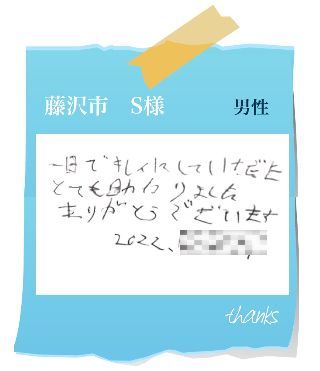 藤沢市　S様
男性
一日でキレイにしていただき
とても助かりました
ありがとうございます
2022.
thanks